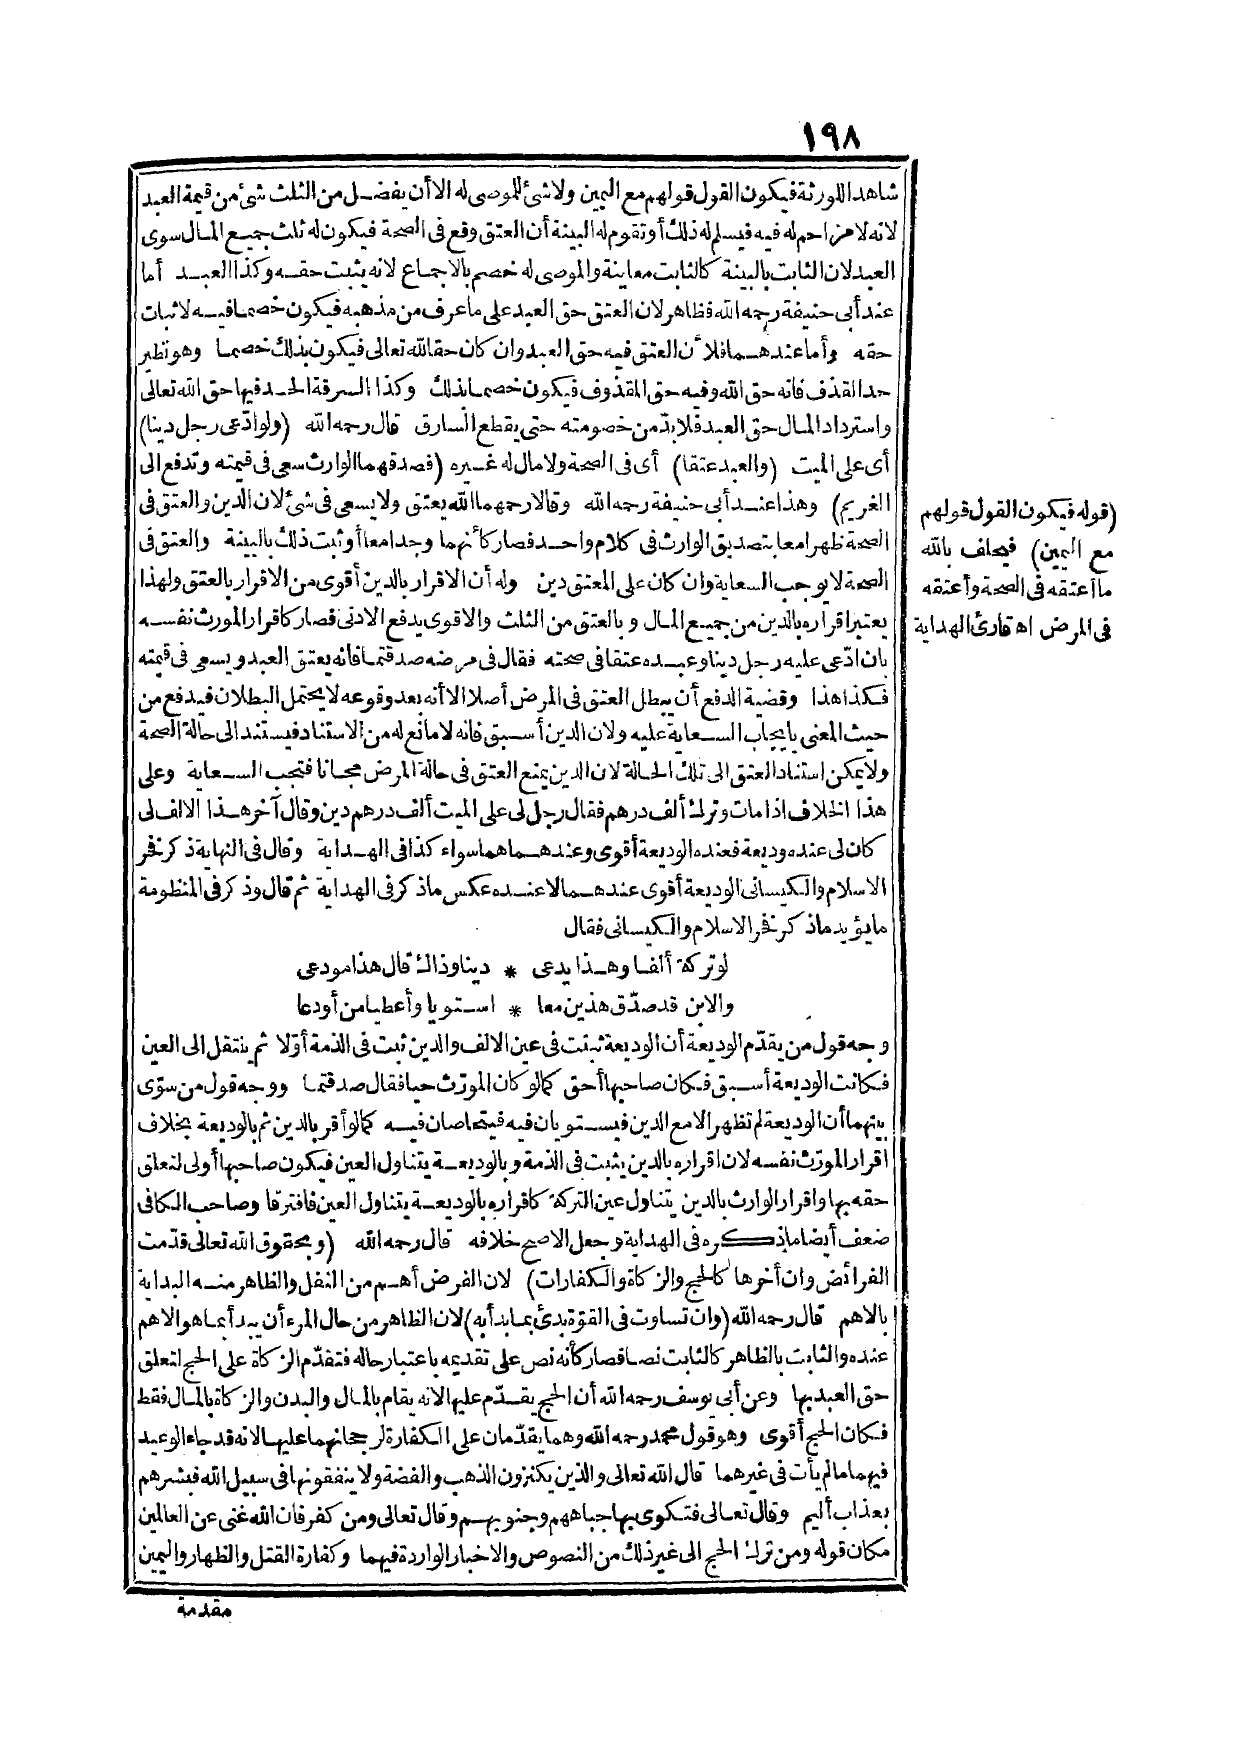 ١٩٨
شاهد اللورثة فيكون القول قولهم مع اليمين ولا شئ للموصى له الا أن يفضل من الثلث شئ من قيمة العبد
لانه لا مزاحم له فيه فيسلم له ذلك أو تقوم له البينة أن العتق وقع فى الصحة فيكون له ثلث جميع المال سوى
العبد لان الثابت بالبينة كالثابت معاينة والموصى له خصم بالاجماع لانه يثبت حقه وكذا العبد أما
عند أبى حنيفة رحمه الله فظاهر لان العتق حق العبد على ما عرف من مذهبه فيكون خصما فيه لاثبات
حقه وأما عندهما فلأن العتق فيه حق العبد وان كان حقا لله تعالى فيكون بذلك خصما وهو نظير
حد القذف فانه حق الله وفيه حق المقذوف فيكون خصما بذلك وكذا السرقة الحد فيها حق الله تعالى
واسترداد المال حق العبد فلا بدّ من خصومته حتى يقطع السارق قال رحمه الله (ولو ادّعى رجل دينا)
أى على الميت (والعبد عتقا) أى فى الصحة ولا مال له غيره (فصدقهما الوارث سعى فى قيمته وتدفع الى
الغريم) وهذا عند أبى حنيفة رحمه الله وقالا رحمهما الله يعتق ولا يسعى فى شئ لان الدين والعتق فى
الصحة ظهرا معا بتصديق الوارث فى كلام واحد فصار كأنهما وجدا معا أو ثبت ذلك بالبينة والعتق فى
الصحة لا يوجب السعاية وان كان على المعتق دين وله أن الاقرار بالدين أقوى من الاقرار بالعتق ولهذا
يعتبر اقراره بالدين من جميع المال وبالعتق من الثلث والاقوى يدفع الادنى فصار كاقرار المورث نفسه
بان ادّعى عليه رجل دينا وعبده عتقا فى صحته فقال فى مرضه صدقتما فانه يعتق العبد ويسعى فى قيمته
فكذا هذا وقضية الدفع أن يبطل العتق فى المرض أصلا الا أنه بعد وقوعه لا يحتمل البطلان فيدفع من
حيث المعنى بايجاب السعاية عليه ولان الدين أسبق فانه لا مانع له من الاستناد فيستند الى حالة الصحة
ولا يمكن استناد العتق الى تلك الحالة لان الدين يمنع العتق فى حالة المرض مجانا فتجب السعاية وعلى
هذا الخلاف اذا مات وترك ألف درهم فقال رجل لى على الميت ألف درهم دين وقال آخر هذا الالف لى
كان لى عنده وديعة فعنده الوديعة أقوى وعندهما هما سواء كذا فى الهداية وقال فى النهاية ذكر فخر
الاسلام والكيسانى الوديعة أقوى عندهما لا عنده عكس ما ذكر فى الهداية ثم قال وذكر فى المنظومة
ما يؤيد ما ذكر فخر الاسلام والكيسانى فقال
لو تركه ألفا وهذا يدعى * دينا وذاك قال هذا مودعى
والابن قد صدّق هذين معا * استويا وأعطيا من أودعا
وجه قول من يقدّم الوديعة أن الوديعة ثبتت فى عين الالف والدين ثبت فى الذمة أوّلا ثم ينتقل الى العين
فكانت الوديعة أسبق فكان صاحبها أحق كما لو كان المورّث حيا فقال صدقتما ووجه قول من سوّى
بينهما أن الوديعة لم تظهر الا مع الدين فيستويان فيه فيتحاصان فيه كما لو أقر بالدين ثم بالوديعة بخلاف
اقرار المورّث نفسه لان اقراره بالدين يثبت فى الذمة وبالوديعة يتناول العين فيكون صاحبها أولى لتعلق
حقه بها واقرار الوارث بالدين يتناول عين التركة كاقراره بالوديعة يتناول العين فافترقا وصاحب الكافى
ضعف أيضا ما ذكره فى الهداية وجعل الاصح خلافه قال رحمه الله (وبحقوق الله تعالى قدّمت
الفرائض وان أخرها كالحج والزكاة والكفارات) لان الفرض أهم من النفل والظاهر منه البداية
بالاهم قال رحمه الله (وان تساوت فى القوة بدئ بما بدأ به) لان الظاهر من حال المرء أن يبدأ بما هو الاهم
عنده والثابت بالظاهر كالثابت نصا فصار كأنه نص على تقديمه باعتبار حاله فتقدّم الزكاة على الحج لتعلق
حق العبد بها وعن أبى يوسف رحمه الله أن الحج يقدّم عليها لانه يقام بالمال والبدن والزكاة بالمال فقط
فكان الحج أقوى وهو قول محمد رحمه الله وهما يقدّمان على الكفارة لرجحانهما عليها لانه قد جاء الوعيد
فيهما ما لم يأت فى غيرهما قال الله تعالى والذين يكنزون الذهب والفضة ولا ينفقونها فى سبيل الله فبشرهم
بعذاب أليم وقال تعالى فتكوى بها جباههم وجنوبهم وقال تعالى ومن كفر فان الله غنى عن العالمين
مكان قوله ومن ترك الحج الى غير ذلك من النصوص والاخبار الواردة فيهما وكفارة القتل والظهار واليمين
مقدمة
(قوله فيكون القول قولهم
مع اليمين) فيحلف بالله
ما أعتقه فى الصحة وأعتقه
فى المرض اه قارئ الهداية